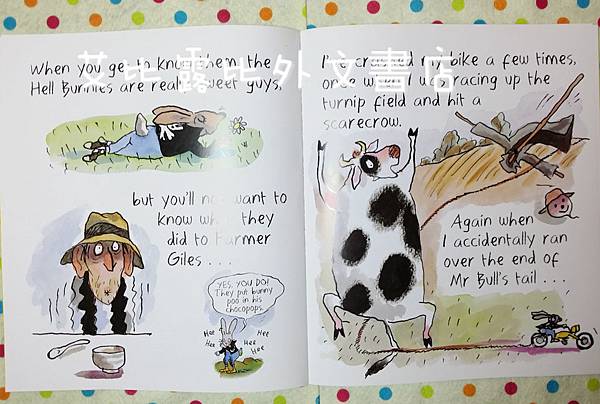 艾比露比外文書店
When you get to know them, the
Hell Bunnies are really sweet guys,
but you'll not want to
know what they
did to Farmer
Giles . . .
YES, YOU DO!
They put bunny
poo in his
chocopops.
Hee Hee
Hee Hee
Hee Hee
I've crashed my bike a few times,
once when I was racing up the
turnip field and hit a
scarecrow.
Again when
I accidentally ran
over the end of
Mr Bull's tail . . .